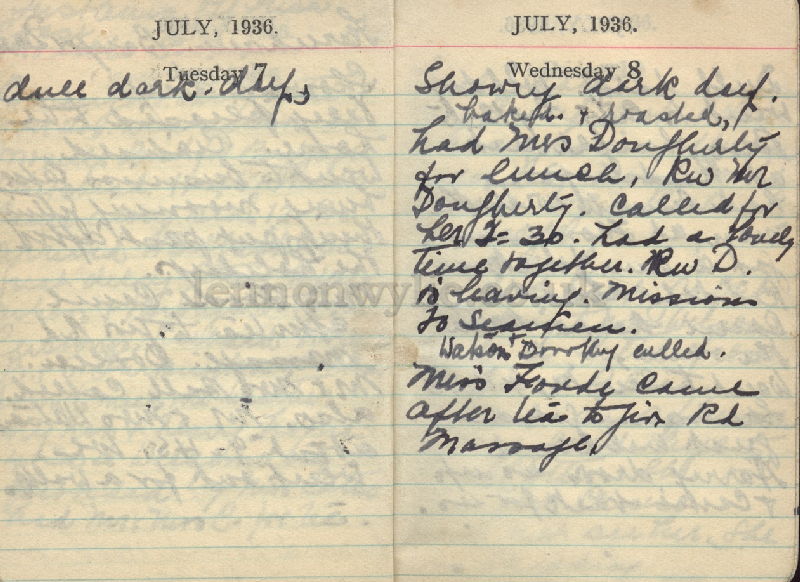 JULY, 1936.
Tuesday 7
dull dark day.
JULY, 1936.
Wednesday 8
Showry dark day.
baked & roasted,
had Mrs Dougherty
for lunch, Rev Mr
Dougherty. called for
her 2=30. had a lovely
time together. Rev D.
is leaving. Missions
to Seamen.
Watson & Dorothy called.
Miss Forde came
after tea to give Rd
Massage.